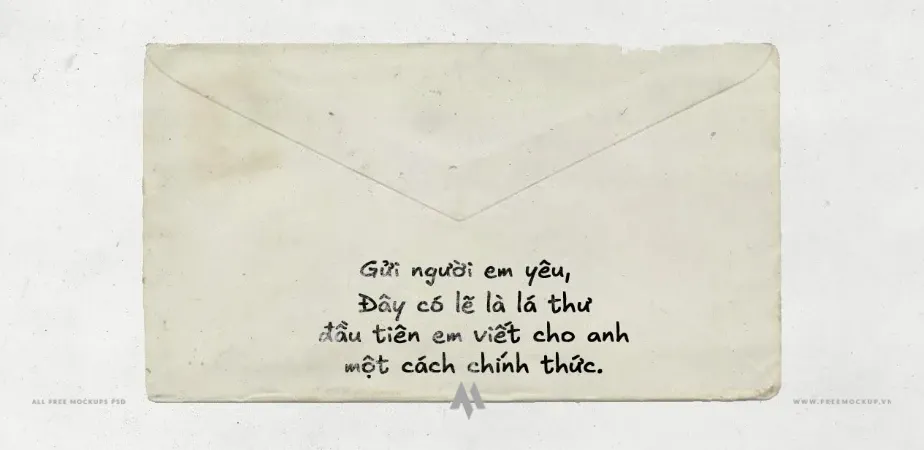 Gửi người em yêu,
Đây có lẽ là lá thư
đầu tiên em viết cho anh
một cách chính thức.
ALL FREE MOCKUPS PSD
WWW.FREEMOCKUP.VN